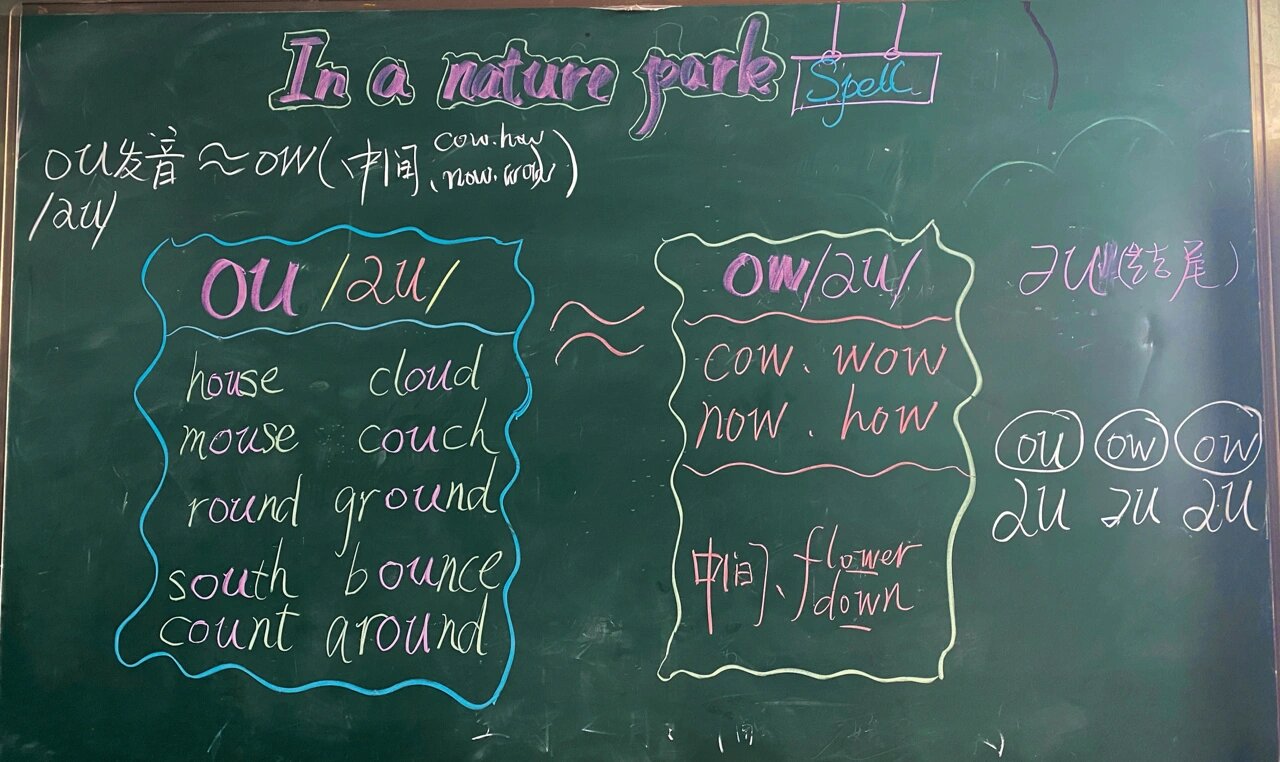 In a nature park Spell
ou发音≈ow(中间、cow.how
now.wow)
/au/
ou /au/
house cloud
mouse couch
round ground
south bounce
count around
≈
ow/au/
cow. wow
now. how
中间、flower
down
əu(结尾)
ou ow ow
au əu au